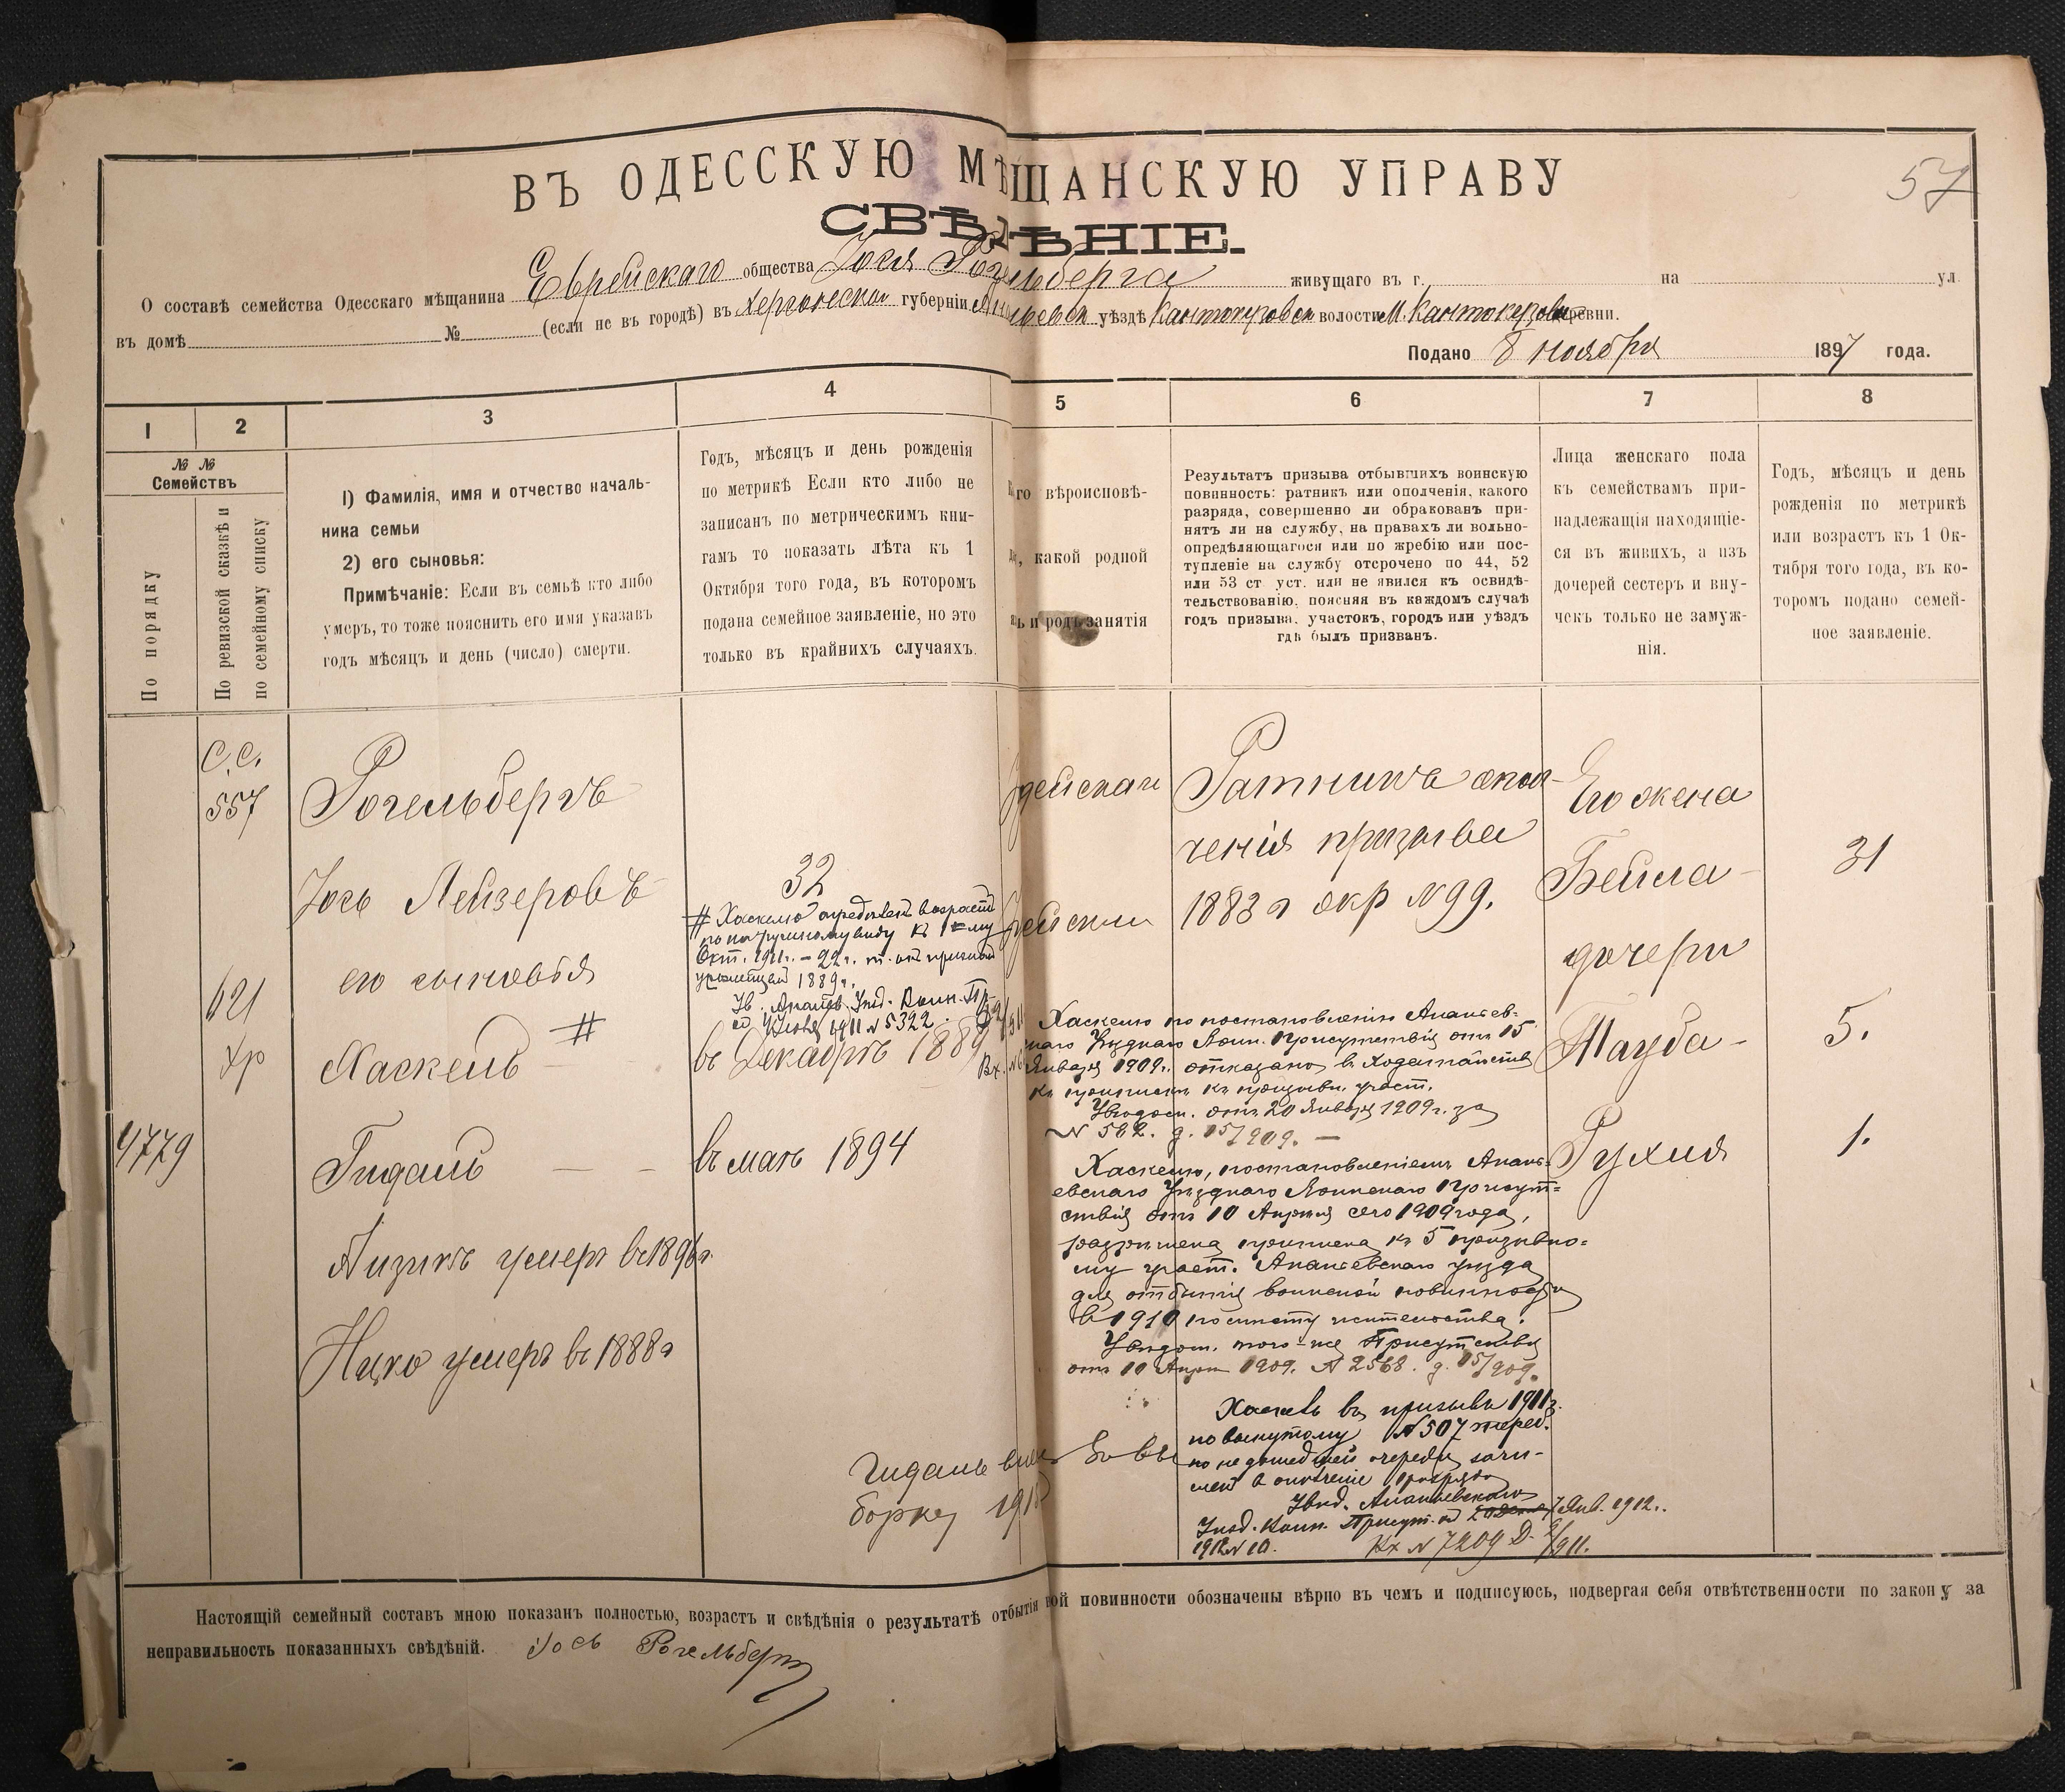 57
ВЪ ОДЕССКУЮ МѢЩАНСКУЮ УПРАВУ
СВѢДѢНІЕ.
О составѣ семейства Одесскаго мѣщанина Еврейскаго общества Іося Рогельберга живущаго въ г. на ул.
въ домѣ № (если не въ городѣ) въ Херсонской губерніи уѣздѣ волости М. деревни.
Подано 8 Ноября 1897 года.
1
2
3
4
5
6
7
8
№ №
Семействъ
По порядку
По ревизской сказкѣ и
по семейному списку
1) Фамилія, имя и отчество началь-
ника семьи
2) его сыновья:
Примѣчаніе: Если въ семьѣ кто либо
умеръ, то тоже пояснить его имя указавъ
годъ мѣсяцъ и день (число) смерти.
Годъ, мѣсяцъ и день рожденія
по метрикѣ Если кто либо не
записанъ по метрическимъ кни-
гамъ то показать лѣта къ 1
Октября того года, въ которомъ
подана семейное заявленіе, но это
только въ крайнихъ случаяхъ.
го вѣроисповѣ-
, какой родной
ь и родъ занятія
Результатъ призыва отбывшихъ воинскую
повинность: ратникъ или ополченія, какого
разряда, совершенно ли обракованъ при-
нятъ ли на службу, на правахъ ли вольно-
опредѣляющагося или по жребію или пос-
тупленіе на службу отсрочено по 44, 52
или 53 ст уст. или не явился къ освидѣ-
тельствованію, поясняя въ каждомъ случаѣ
годъ призыва, участокъ, городъ или уѣздъ
гдѣ былъ призванъ.
Лица женскаго пола
къ семействамъ при-
надлежащія находящіе-
ся въ живихъ, а изъ
дочерей сестеръ и вну-
чекъ только не замуж-
нія.
Годъ, мѣсяцъ и день
рожденія по метрикѣ
или возрастъ къ 1 Ок-
тября того года, въ ко-
торомъ подано семей-
ное заявленіе.
С.С.
557
Рогельбергъ
Іось Лейзеровъ
32
его сыновья
621
Хр
Хаскель #
въ Декабрѣ 1889
4779
Гидаль
въ маѣ 1894
Айзикъ умеръ въ 1896 г.
Ицко умеръ въ 1888 г
# Хаскелю опредѣленъ возрастъ
по наружному виду къ 1му
Окт. 1911 г. – 22 г. т.
1889 г.
Ув. Ананьев. Уѣзд. Воин. Пр.
1911 № 5322
Ратникъ опол-
ченія призыва
1883 г окр № 99.
Его жена
Бейла
31
дочери
Тауба
5.
Рухля
1.
Хаскелю по постановленію Ананьев-
скаго Уѣзднаго Воин. Присутствія отъ 15
Января 1909 г. отказано въ ходатайствѣ
къ припискѣ къ призывн. участ.
Увѣдом. отъ 20 Января 1909 г. за
№ 582. д. 15/909. —
Хаскелю, постановленіемъ Анань-
евскаго Уѣзднаго Воинскаго Присут-
ствія отъ 10 Апрѣля сего 1909 года,
разрѣшена приписка къ 5 призывно-
му участ. Ананьевскаго уѣзда
для отбытія воинской повинности
въ 1910 по мѣсту жительства.
Увѣдом. того-же Присутствія
отъ 10 Апрѣл 1909. № 2568. д. 15/909.
Хаскель въ призывъ 1911 г.
по вынутому № 507 жереб.
по недошедшей очереди зачи-
слен в ополченіе
Увѣд. Ананьевскаго
Уѣзд. Воин. Присут. от 7 Янв. 1912 г.
Вх № 7209 Д. /911.
Гидаль
Настоящій семейный составъ мною показанъ полностью, возрастъ и свѣдѣнія о результатѣ отбытія ной повинности обозначены вѣрно въ чемъ и подписуюсь, подвергая себя отвѣтственности по закону за
неправильность показанныхъ свѣдѣній. Іось Рогельбергъ